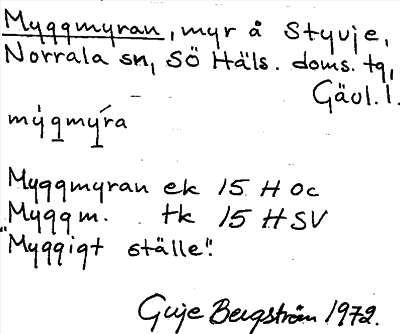 Myggmyran, myr å Styvje,
Norrala sn, Sö Häls. doms. tg,
Gävl. l.
mýgmy̆́ra
Myggmyran ek 15 H Oc
Myggm. tk 15 H SV
"Myggigt ställe".
Guje Bergström 1972.